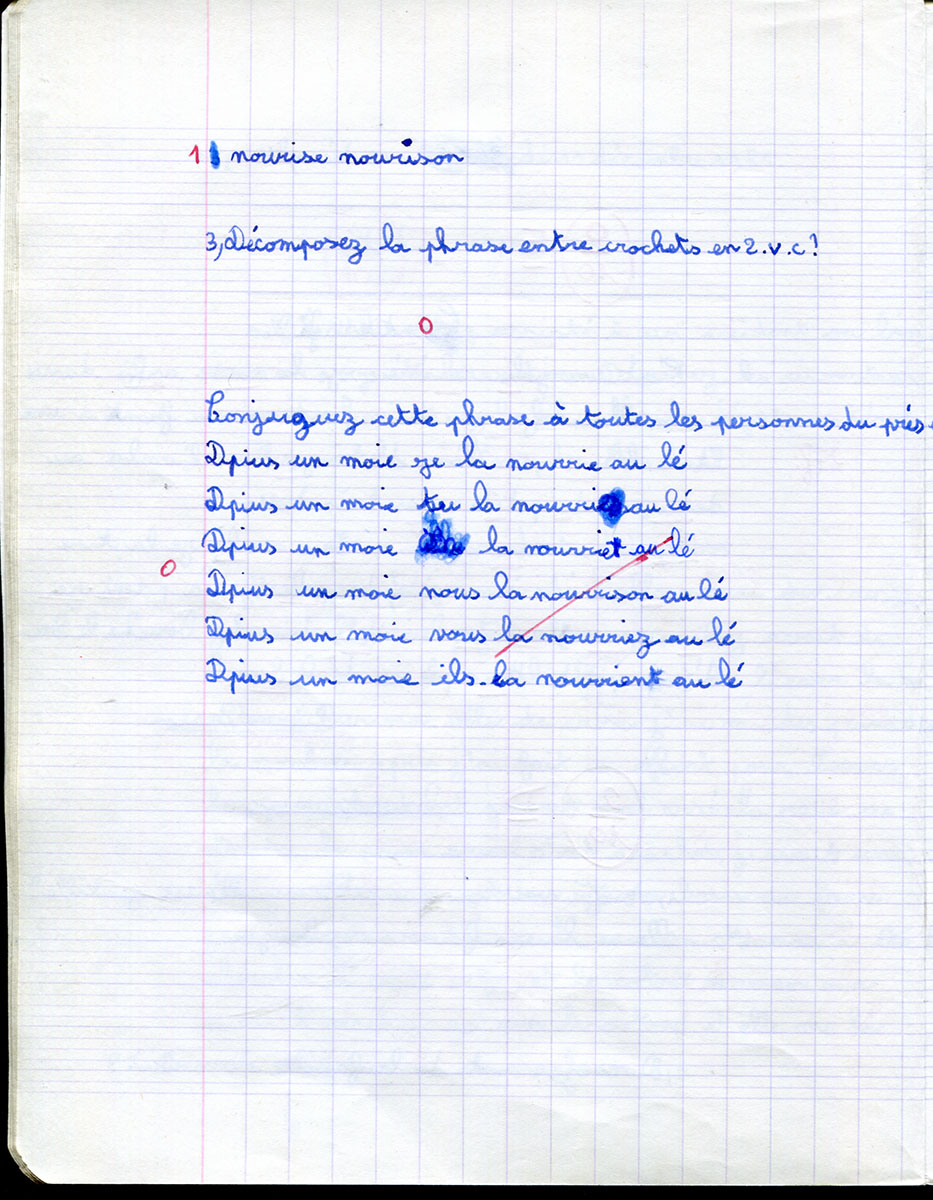 1 nourise nourison
3, Décomposez la phrase entre crochets en 2.v.c!
0
Conjuguez cette phrase à toutes les personnes du prés
Dpius un moie je la nourrie au lé
Dpius un moie teu la nourrie au lé
Dpius un moie la nourriet au lé
0
Dpius un moie nous la nourrison au lé
Dpius un moie vous la nourriez au lé
Dpius un moie ils la nourrient au lé